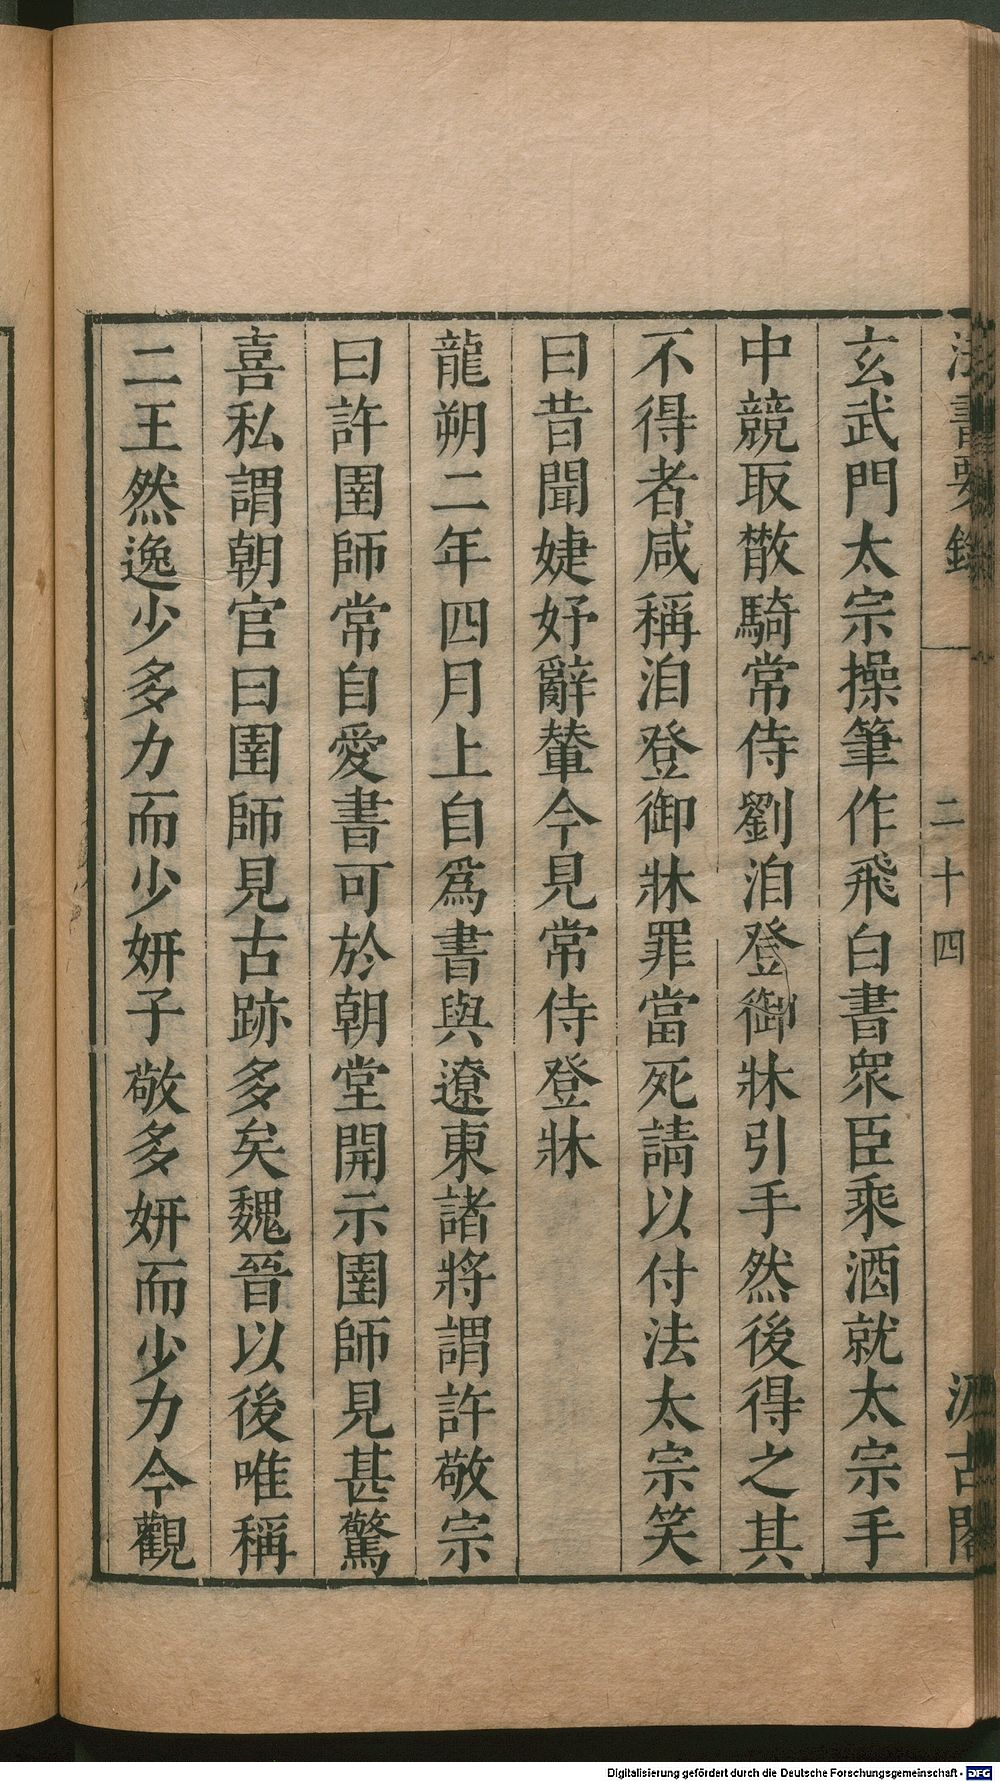 法書要錄
二十四
汲古閣
玄武門太宗操筆作飛白書衆臣乘酒就太宗手
中競取散騎常侍劉洎登御牀引手然後得之其
不得者咸稱洎登御牀罪當死請以付法太宗笑
曰昔聞婕妤辭輦今見常侍登牀
龍朔二年四月上自爲書與遼東諸將謂許敬宗
曰許圉師常自愛書可於朝堂開示圉師見甚驚
喜私謂朝官曰圉師見古跡多矣魏晉以後唯稱
二王然逸少多力而少妍子敬多妍而少力今觀
Digitalisierung gefördert durch die Deutsche Forschungsgemeinschaft - DFG